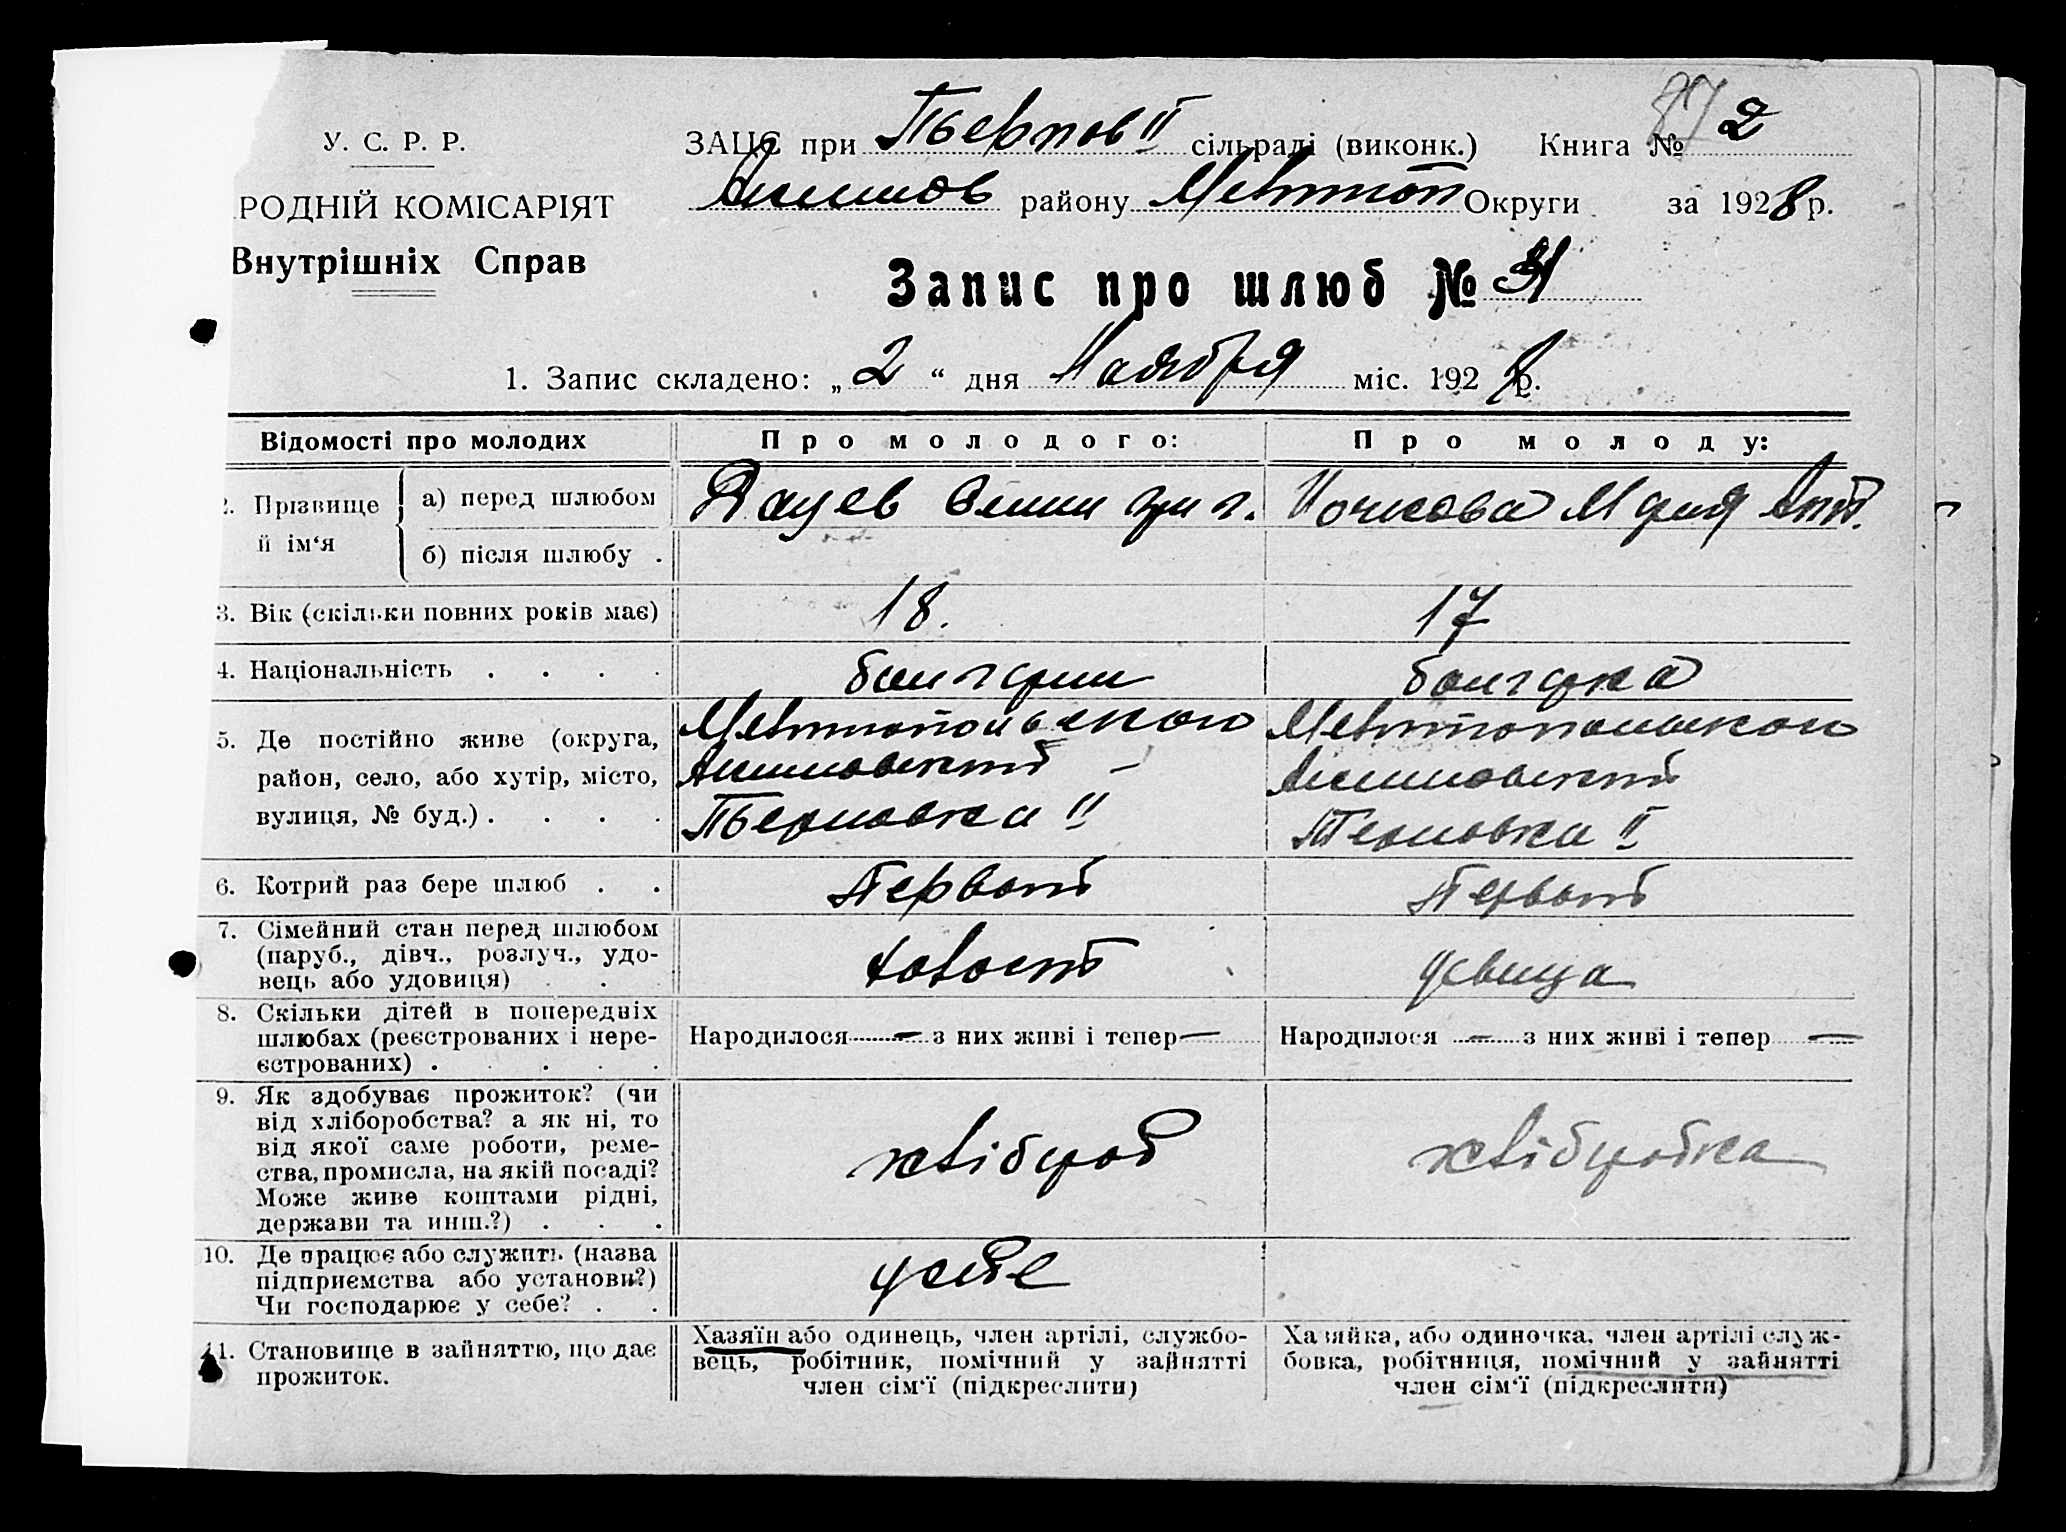 У. С. Р. Р.
РОДНІЙ КОМІСАРІЯТ
Внутрішніх Справ
ЗАЦС при сільраді (виконк.) Книга № 2
Акимов району Мелитоп Округи за 1928 р.
Запис про шлюб № 31
1. Запис складено: „ 2 “ дня Ноября міс. 1928 р.
Відомості про молодих
Про молодого:
Про молоду:
2. Прізвище й ім‘я
а) перед шлюбом
Григ.
Мария Ант.
б) після шлюбу .
3. Вік (скільки повних років має)
18.
17
4. Національність . . . .
болгарин
болгарка
5. Де постійно живе (округа,
район, село, або хутір, місто,
вулиця, № буд.) . . . .
Мелитопольской
Акимовский
II
Мелитопольской
Акимовский
II
6. Котрий раз бере шлюб . .
Первый
Первый
7. Сімейний стан перед шлюбом
(паруб., дівч., розлуч., удо-
вець або удовиця) . . .
холост
девица
8. Скільки дітей в попередніх
шлюбах (реєстрованих і нере-
єстрованих) . . . . .
Народилося — з них живі і тепер —
Народилося — з них живі і тепер —
9. Як здобуває прожиток? (чи
від хліборобства? а як ні, то
від якої саме роботи, реме-
ства, промисла, на якій посаді?
Може живе коштами рідні,
держави та инш.?) . . .
хлібороб
хліборобка
10. Де працює або служить (назва
підприємства або установи?)
Чи господарює у себе? . .
у себе
11. Становище в зайняттю, що дає
прожиток.
Хазяїн або одинець, член артілі, службо-
вець, робітник, помічний у зайнятті
член сім‘ї (підкреслити)
Хазяйка, або одиночка, член артілі служ-
бовка, робітниця, помічний у зайнятті
член сім‘ї (підкреслити)